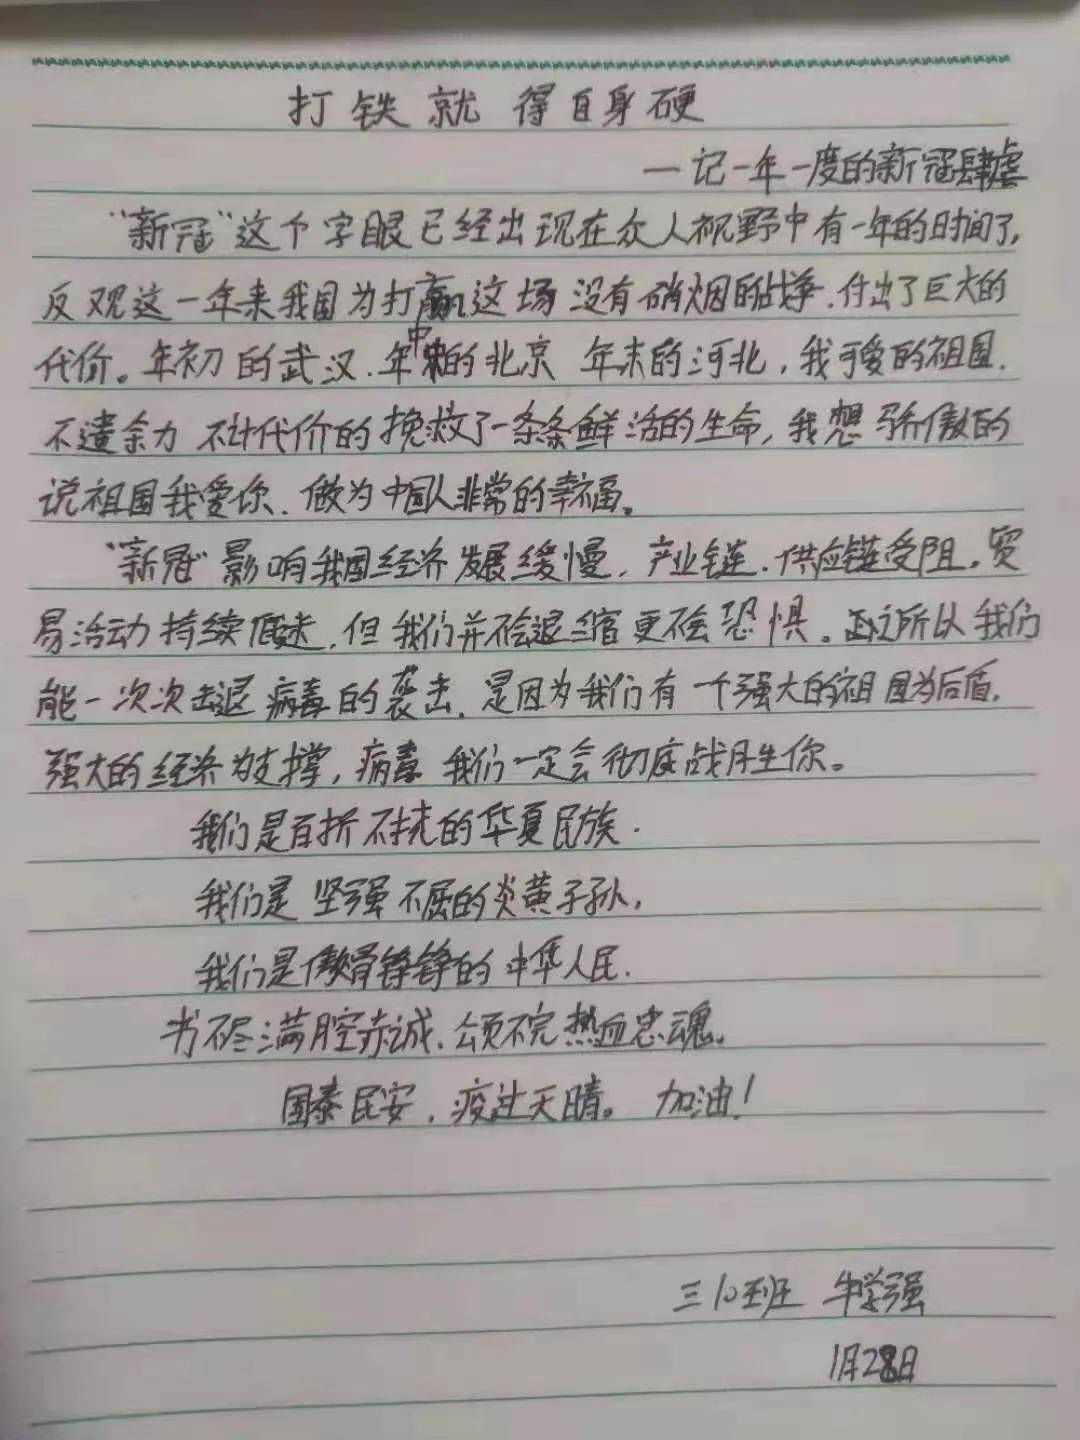 打铁就得自身硬
一记一年一度的新冠肆虐
"新冠"这个字眼已经出现在众人视野中有一年的时间了,
反观这一年来我国为打赢这场没有硝烟的战争.付出了巨大的
代价。年初的武汉.年中的北京 年末的河北,我可爱的祖国.
不遗余力 不计代价的挽救了一条条鲜活的生命,我想骄傲的
说祖国我爱你.做为中国人非常的幸福。
"新冠"影响我国经济发展缓慢,产业链.供应链受阻,贸
易活动持续低迷.但我们并不会退缩更不会恐惧。正之所以我们
能一次次击退病毒的袭击.是因为我们有一个强大的祖国为后盾.
强大的经济为支撑,病毒 我们一定会彻底战胜你。
我们是百折不挠的华夏民族.
我们是坚强不屈的炎黄子孙,
我们是傲骨铮铮的中华人民.
书不尽满腔赤诚.颂不完热血忠魂。
国泰民安,疫过天晴。加油!
三10班 牛学强
1月28日